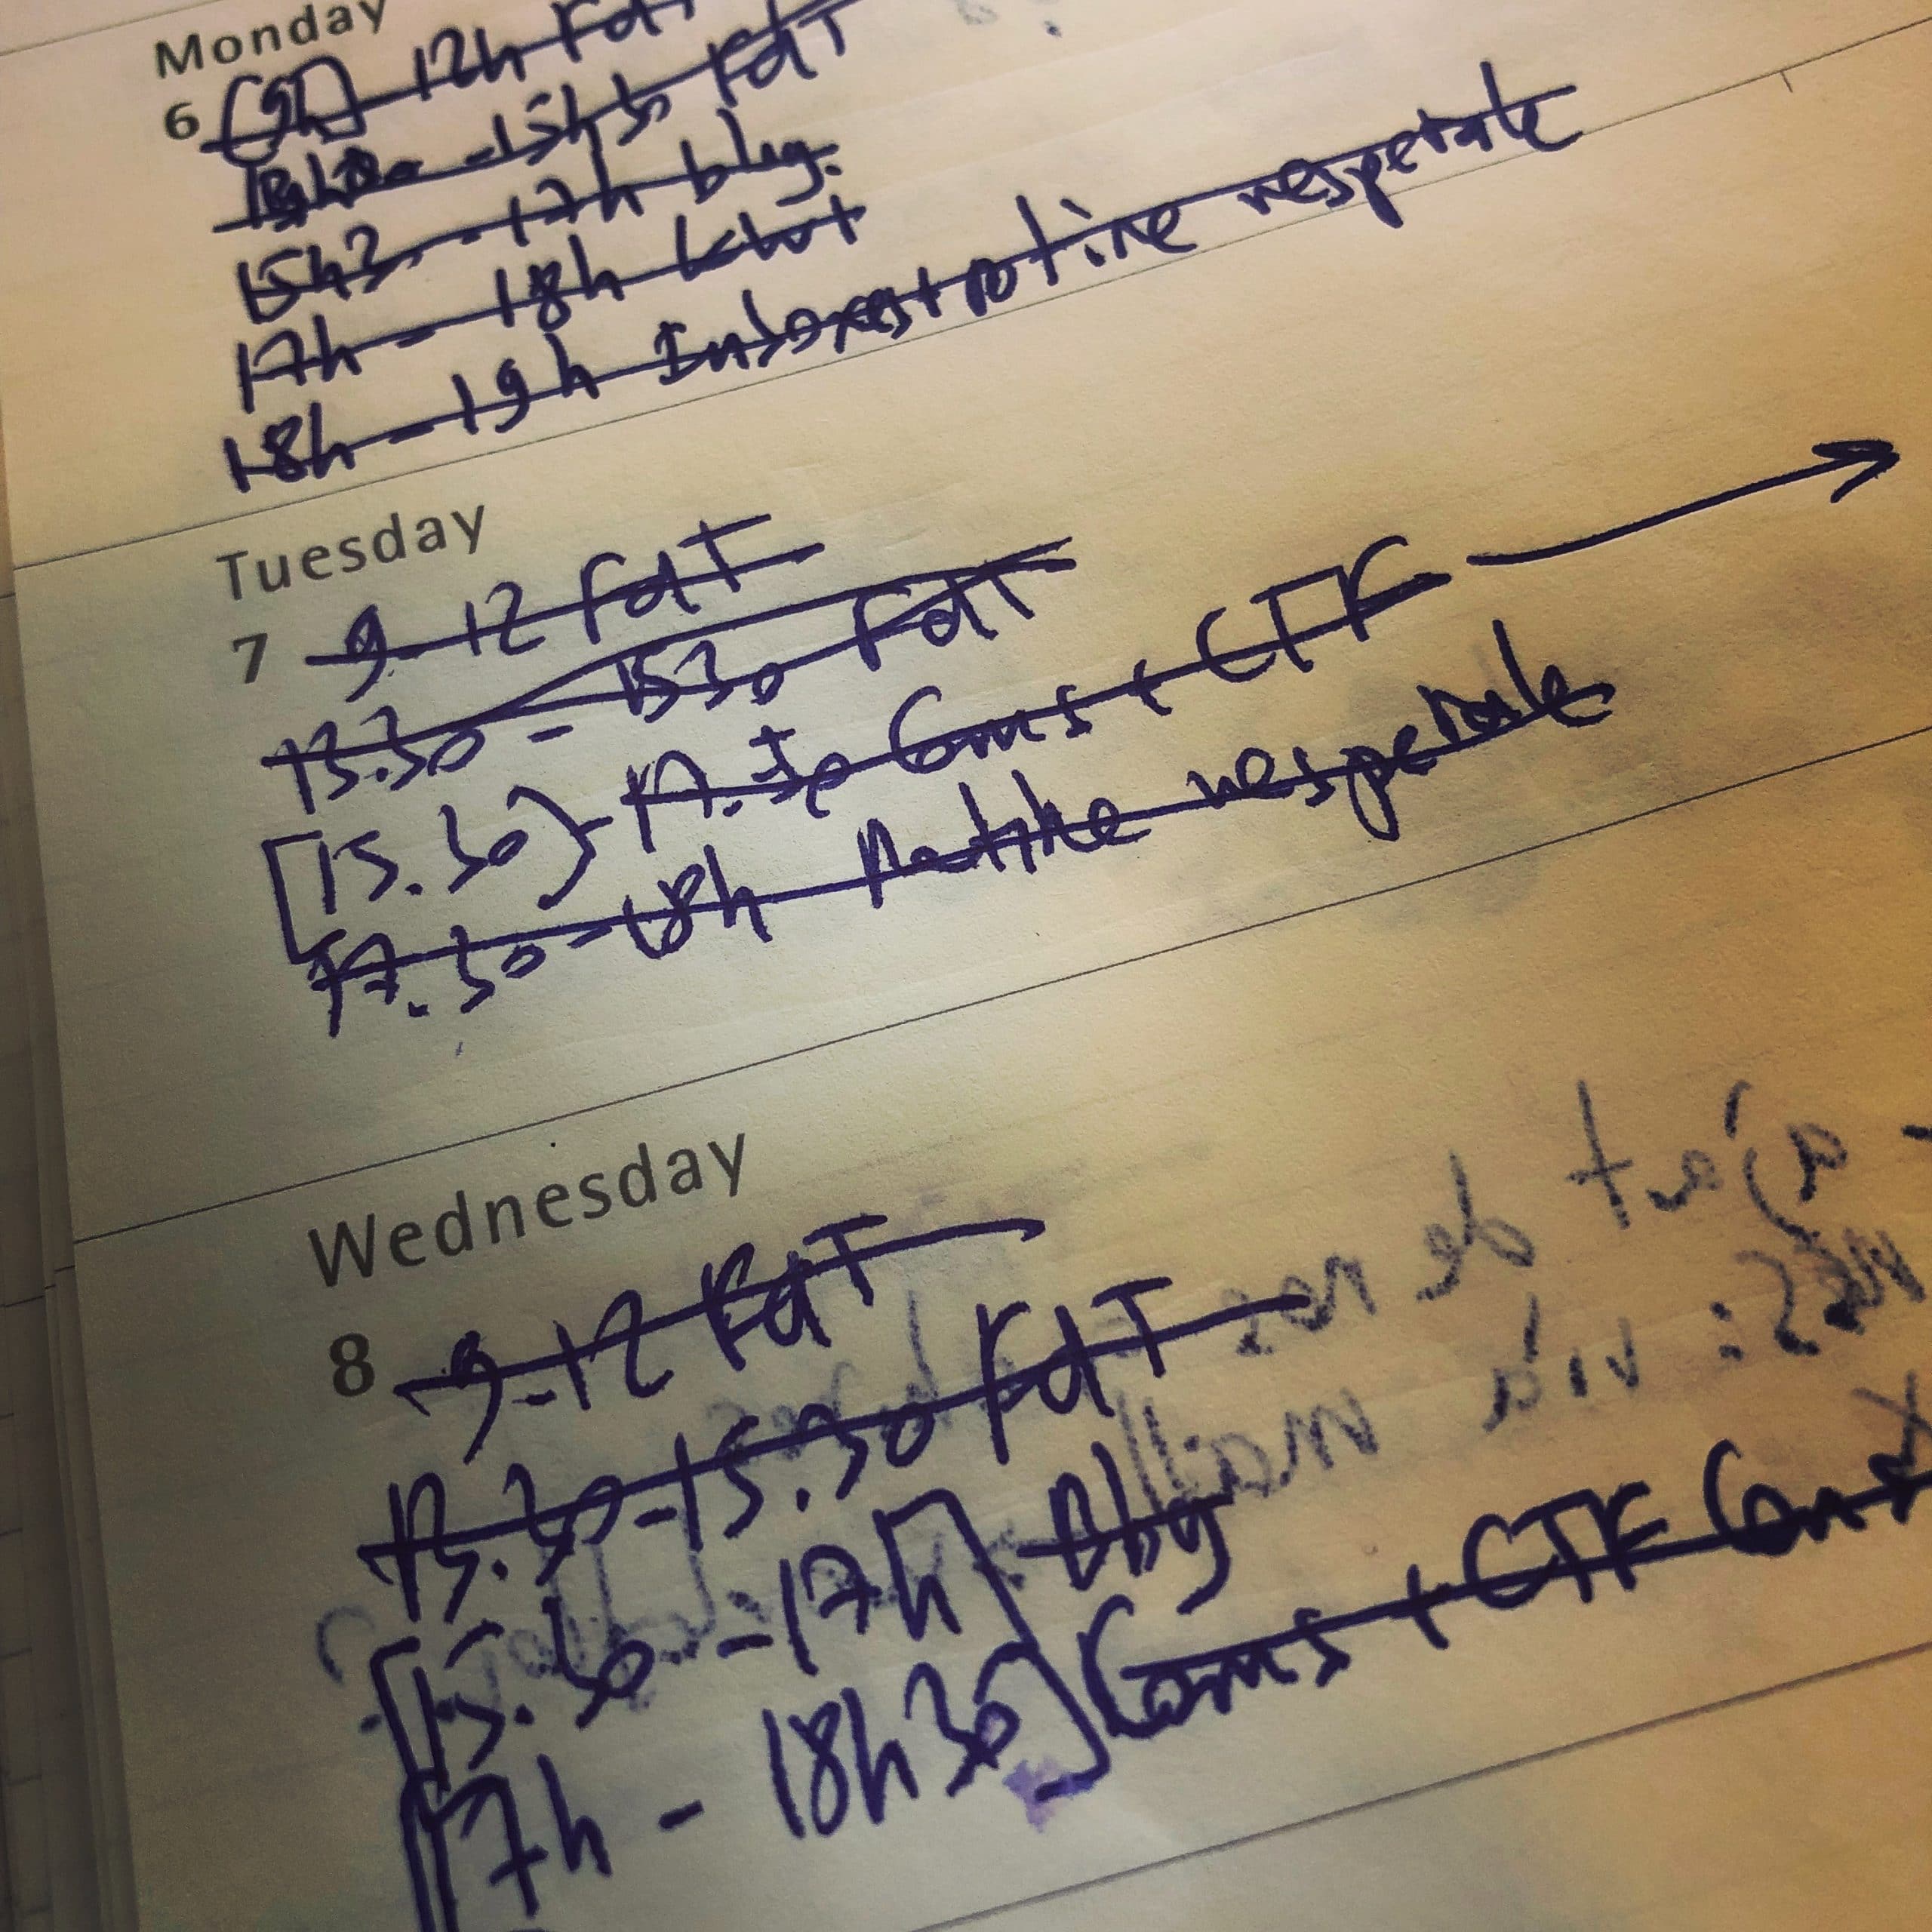 Monday
6 [9h] - 12h FdT
- 15h30 FdT
15h30 - 17h blog.
17h - 18h
18h - 19h Inboxes + routine resperate
Tuesday
7 9-12 FdT
13.30 - 15.30 FdT
[15.30] - 17.30 Coms + CTF →
17.30 - 18h Routine resperate
Wednesday
8 9-12 FdT
13.30 - 15.30 FdT
[15.30 - 17h] Blog
[17h - 18h30] Coms + CTF Cont